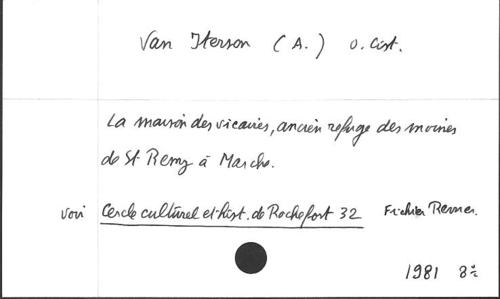 Van Iterson (A.) O. Cist.
La maison des vicaires, ancien refuge des moines
de St Remy à Marche.
voir Cercle culturel et hist. de Rochefort 32 Fichier
1981 8°